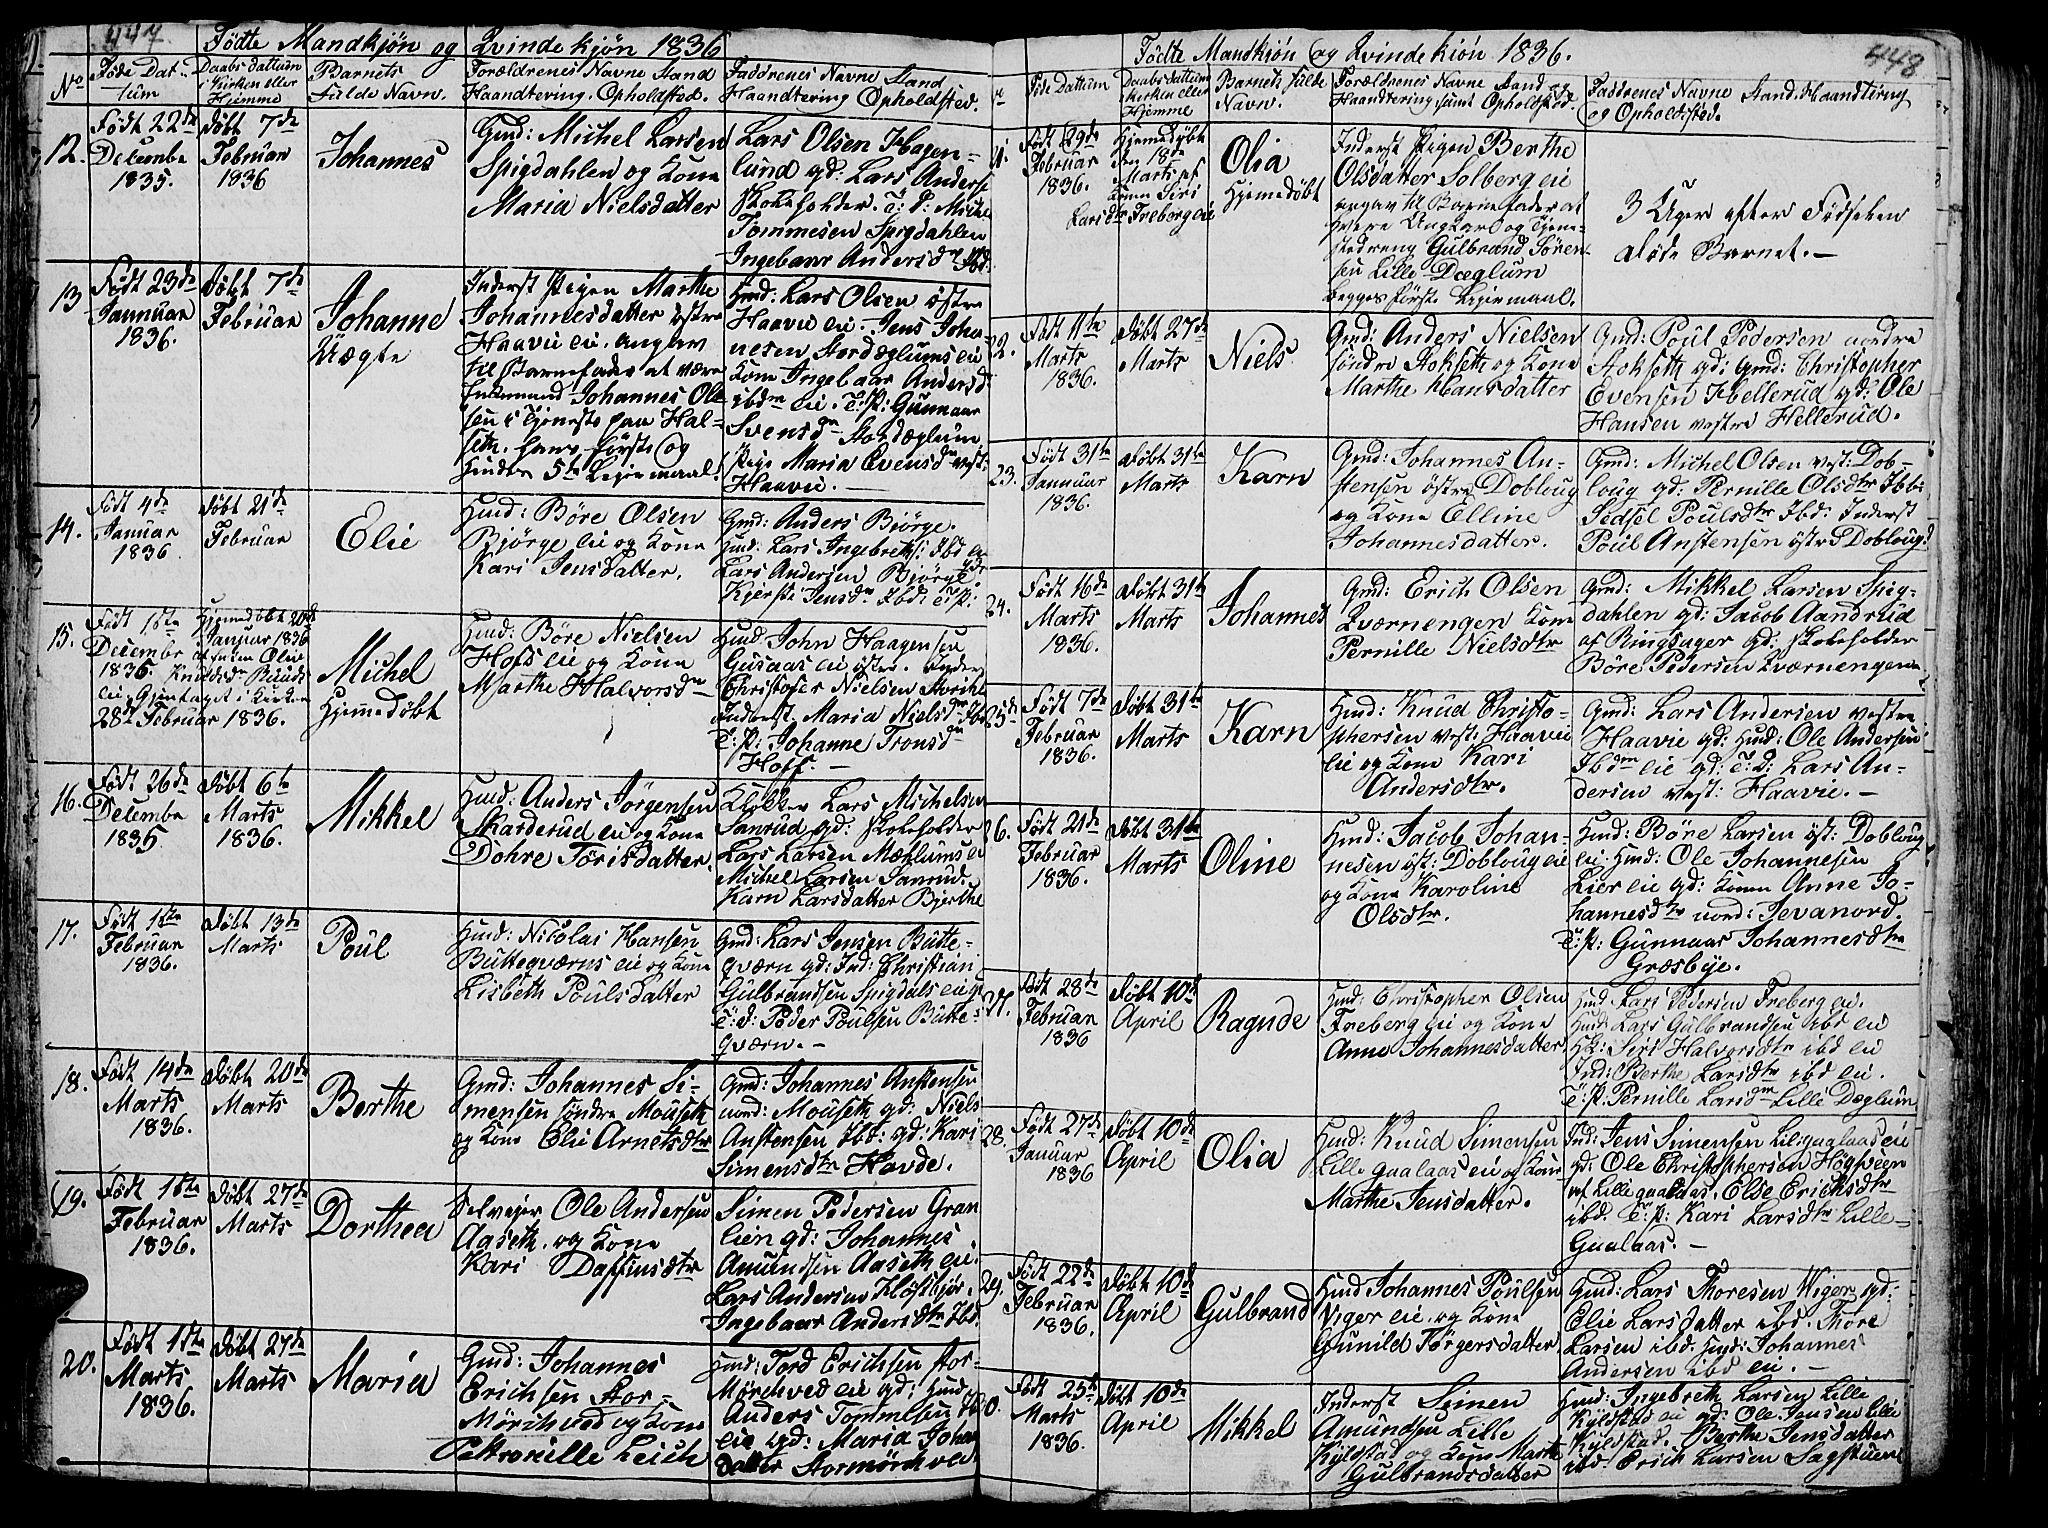 447.
Fødte Mandkjøn og Qvindekjøn 1836
No
Føde Dat-
tum
Daabs dattum
i Kirken eller
Hjemme
Barnets
fulde Navn.
Forældrenes Navne Stand
Haandtering. Opholdsted.
Faddrenes Navne Stand
Haandtering Opholdsted.
12.
Født 22de
Decembe
1835.
døbt 7de
Februar
1836
Johannes
Gmd: Michel Larsen
Spigdahlen og Kone
Maria Nielsdatter
Lars Olsen Hagen-
lund gd: Lars Anderse
skoleholder. T: P: Michel
Tommesen Spigdahlen
Ingebaar Andersdr Ibd:
13
Født 23de
Januar
1836.
Døbt 7de
Februar
Johanne
Uægte
Inderst Pigen Marthe
Johannesdatter vestre
Haavie eie, angav
til Barnefader at være
Johannes Ole
sen i Tjeneste paa Hal-
seth. hans første og
hendes 5te Leiermaal.
Hmd: Lars Olsen østre
Haavie eie. Jens Joha
nesen Stordæglums eie
Kone Ingebaar Andersd
ibdm eie. T: P: Gunnaar
Svensdr Stordæglum
Pige Maria Evensdr vest:
Haavie.
14.
Født 4de
Januar
1836.
Døbt 21de
Februar
Elie
Hmd: Böre Olsen
Bjørge eie og Kone
Kari Jensdatter.
Gmd: Anders Bjørge.
Hmd: Lars Ingebrets: Ibd eie
Lars Andersen Bjørge
Kjersti Jensdr Ibd: T: P:
15.
Født 1ste
Decembe
1835.
Hjemmedøbt 20de
Januar 1836
Knudsdr
eie. Gjentaget i Kirken
28de Februar 1836.
Michel
Hjemedøbt
Hmd: Böre Nielsen
Hofs eie og Kone
Marthe Halvorsdr
Hmd John Haagensen
Gusaas eie østre.
Christofer Nielsen
Inderst. Maria Nielsdr Ibd
T: P: Johanne Tronsdr
Hoff.
16.
Født 26de
Decembe
1835
Døbt 6te
Marts
1836.
Mikkel
Hmd: Anders Jørgensen
Skarderud eie og Kone
Dohre Torisdatter.
Klokker Lars Michelsen
Sanrud gd: skoleholder
Lars Larsen Mæhlums ei
Michel Larsen Sanrud.
Karn Larsdatter Bjerkhe
17.
Født 1ste
Februar
1836.
Døbt 13de
Marts
Poul
Hmd: Nicolai Hansen
Bütteqværns eie og Kone
Lisbeth Poulsdatter
Gmd: Lars Jensen Bütte-
qværn gd: Ind: Christian
Gulbrandsen Spigdals eie gd
T: d: Peder Poulsen Bütte-
qværn.
18.
Født 14de
Marts
1836.
Døbt 20de
Marts
Berthe
Gmd: Johannes Si-
mensen søndre Mouseth
og Kone Elie Arnetsdtr
Gmd: Johannes Anstensen
nord: Mouseth gd: Niels
Anstensen Ibd: gd: Kari
Simensdtr Hovde.
19.
Født 1ste
Februar
1836.
Døbt 27de
Marts
Dorthea
Selvejer Ole Andersen
Aaseth. og Kone
Kari Daffinsdtr
Simen Pedersen Gran
eien gd: Johannes
Amundsen Aaseth eie.
Lars Andersen Høstbjør.
Ingebaar Andersdtr Ibd.
20.
Født 1ste
Marts
1836.
Døbt 27de
Marts
Maria
Gmd: Johannes
Erichsen Stor-
Mørchved og Kone
Petronille Leich
Hmd: Tord Erichsen Stor-
Mørchved eie gd: Hmd
Anders Tommesen Ibd
eie gd: Maria Johan
datter Stormørchved
448
Fødte Mandkjøn og Qvindekjøn 1836.
Føde Dattum
Daabs dattum
i Kirken eller
Hjemme
Barnets fulde
Navn.
Forældrenes Navne Stand
Haandtering samt Opholdsted.
Faddrenes Navne Stand. Haandtering
og Opholdsted.
21.
Født 29de
Februar
1836.
Hjemedøbt
den 18de
Marts af
Kone Siri
Larsdtr Freberg eie
Olia
Hjemedøbt
Inderst Pigen Berthe
Olsdatter Solberg eie
angav til Barnefader at
være Ungkarl og Tjene-
stedreng Gulbrand Søren-
sen Lille-Dæglum
begges første Leiermaal.
3 Uger efter Fødselen
døde Barnet.
22.
Født 11te
Marts
1836.
Døbt 27de
Marts
Niels
Gmd: Anders Nielsen
søndre Stokseth og Kone
Marthe Hansdatter
Gmd: Poul Pedersen nordre
Stokseth gd: Gmd: Christopher
Evensen Hellerud gd: Ole
Hansen vestre Hellerud.
23.
Født 31te
Januar
1836.
Døbt 31te
Marts
Karn
Gmd: Johannes An-
stensen østre Doblouq
og Kone Elline
Johannesdatter.
Gmd: Michel Olsen vest: Dob-
loug gd: Pernille Olsdtr Ibd:
Sedsel Poulsdtr Ibd: Inderst
Poul Anstensen østre Dobloug.
24.
Født 16de
Marts
1836.
Døbt 31te
Marts
Johannes
Gmd: Erich Olsen
Qværnengen Kone
Pernille Nielsdtr
Gmd: Mikkel Larsen Spig-
dahlen gd: Jacob Aandrud
af Ringsager gd: skoleholder
Böre Pedersen Qværnengen
25.
Født 7de
Februar
1836.
Døbt 31te
Marts
Karn
Hmd: Knud Christo-
phersen vest: Haavie
eie og Kone Kari
Andersdtr.
Gmd: Lars Andersen vestre
Haavie gd: Hmd: Ole Andersen
Ibdm eie gd: T: D: Lars An-
dersen vest: Haavie.
26.
Født 21de
Februar
1836.
Døbt 31te
Marts
Oline
Hmd: Jacob Johan-
nesen øst: Dobloug eie
og Kone Karoline
Olsdtr.
Hmd: Böre Larsen øst: Dobloug
eie. Hmd: Ole Johannesen
Lier eie gd: Konen Anne Jo-
hannesdtr nord: Jevanord.
T: P: Gunnaar Johannesdtr
Græsbye.
27.
Født 28de
Februar
1836
Døbt 10de
April
Ragnde
Hmd: Christopher Olsen
Freberg eie og Kone
Anne Johannesdatter
Hmd Lars Pedersen Freberg eie.
Hmd: Lars Gulbrandsen ibd eie
HK: Siri Halvorsdtr ibd eie
Ind: Berthe Larsdtr ibd eie.
T: P: Pernille Larsdr Lille Dæglum
28.
Født 27de
Januar
1836
Døbt 10de
April
Olia
Hmd: Knud Simensen
Lille gaalaas eie og Kone
Marthe Jensdatter.
Ind: Jens Simensen Lil: gaalaas eie
gd: Ole Christophersen Høgsveen
af Lille gaalaas. Else Erichsdtr
ibd. T: P: Kari Larsdtr Lille-
Gaalaas.
29.
Født 22de
Februar
1836.
Døbt 10de
April
Gulbrand
Hmd Johannes Poulsen
Viger eie. og Kone
Gunild Törgersdatter.
Gmd: Lars Thoresen Wiger gd:
Elie Larsdatter ibd. Thore
Larsen ibd. Hmd: Johannes
Andersen ibd eie.
30.
Født 25de
Marts
1836.
Døbt 10de
April
Mikkel
Inderst Simen
Amundsen Lille
Kyldstad og Kone Marthe
Gulbrandsdatter
Hmd: Ingebreth Larsen Lille
Kyldstad eie gd: Ole Jensen Lille
Kyldstad. Berthe Jensdatter
ibd. Erich Larsen Sagstuen